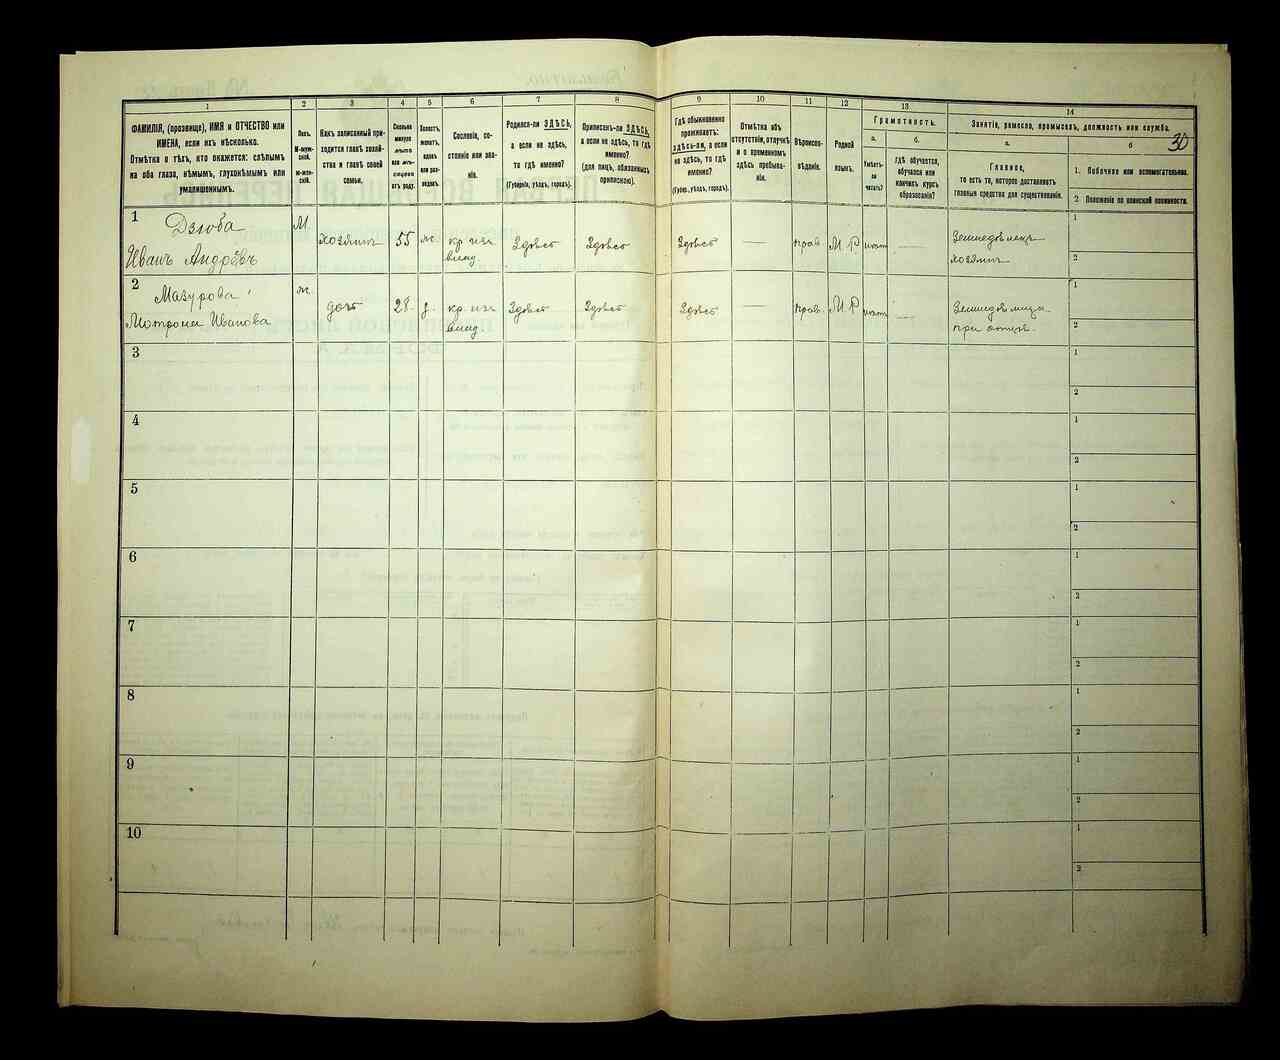 30
1
2
3
4
5
6
7
8
9
10
11
12
13
14
ФАМИЛІЯ, (прозвище), ИМЯ и ОТЧЕСТВО или
ИМЕНА, если ихъ нѣсколько.
Отмѣтка о тѣхъ, кто окажется: слѣпымъ
на оба глаза, нѣмымъ, глухонѣмымъ или
умалишеннымъ.
Полъ.
М-мужской.
Ж-женскій.
Какъ записанный приходится главѣ хозяйства и главѣ своей
семьи.
Сколько
минуло
лѣтъ
или мѣсяцевъ
отъ роду.
Холостъ,
женатъ,
вдовъ
или разведенъ.
Сословіе, состояніе или званіе.
Родился-ли ЗДѢСЬ,
а если не здѣсь,
то гдѣ именно?
(Губернія, уѣздъ, городъ).
Приписанъ-ли ЗДѢСЬ,
а если не здѣсь, то гдѣ
именно?
(для лицъ, обязанныхъ
припискою).
Гдѣ обыкновенно
проживаетъ:
здѣсь-ли, а если
не здѣсь, то гдѣ
именно?
(Губерн., уѣздъ, городъ).
Отмѣтка объ
отсутствіи, отлучкѣ
и о временномъ
здѣсь пребываніи.
Вѣроисповѣданіе.
Родной
языкъ.
Грамотность.
а.
Умѣетъ-ли
читать?
б.
гдѣ обучается,
обучался или
кончилъ курсъ
образованія?
Занятіе, ремесло, промыселъ, должность или служба.
а.
Главное,
то есть то, которое доставляетъ
главныя средства для существованія.
б
1. Побочное или вспомогательное.
2 Положеніе по воинской повинности.
1
Дзюба
Иванъ Андрѣевъ
М.
хозяинъ
55
ж.
кр. изъ
влад.
Здѣсь
Здѣсь
Здѣсь
—
прав.
М. Р.
—
Земледѣлецъ
хозяинъ
1
2
2
Мазурова
Матрона Иванова
ж.
дочь
28.
кр. изъ
влад
Здѣсь
Здѣсь
Здѣсь
—
прав.
М. Р
—
при отцѣ.
1
2
3
1
2
4
1
2
5
1
2
6
1
2
7
1
2
8
1
2
9
1
2
10
1
2